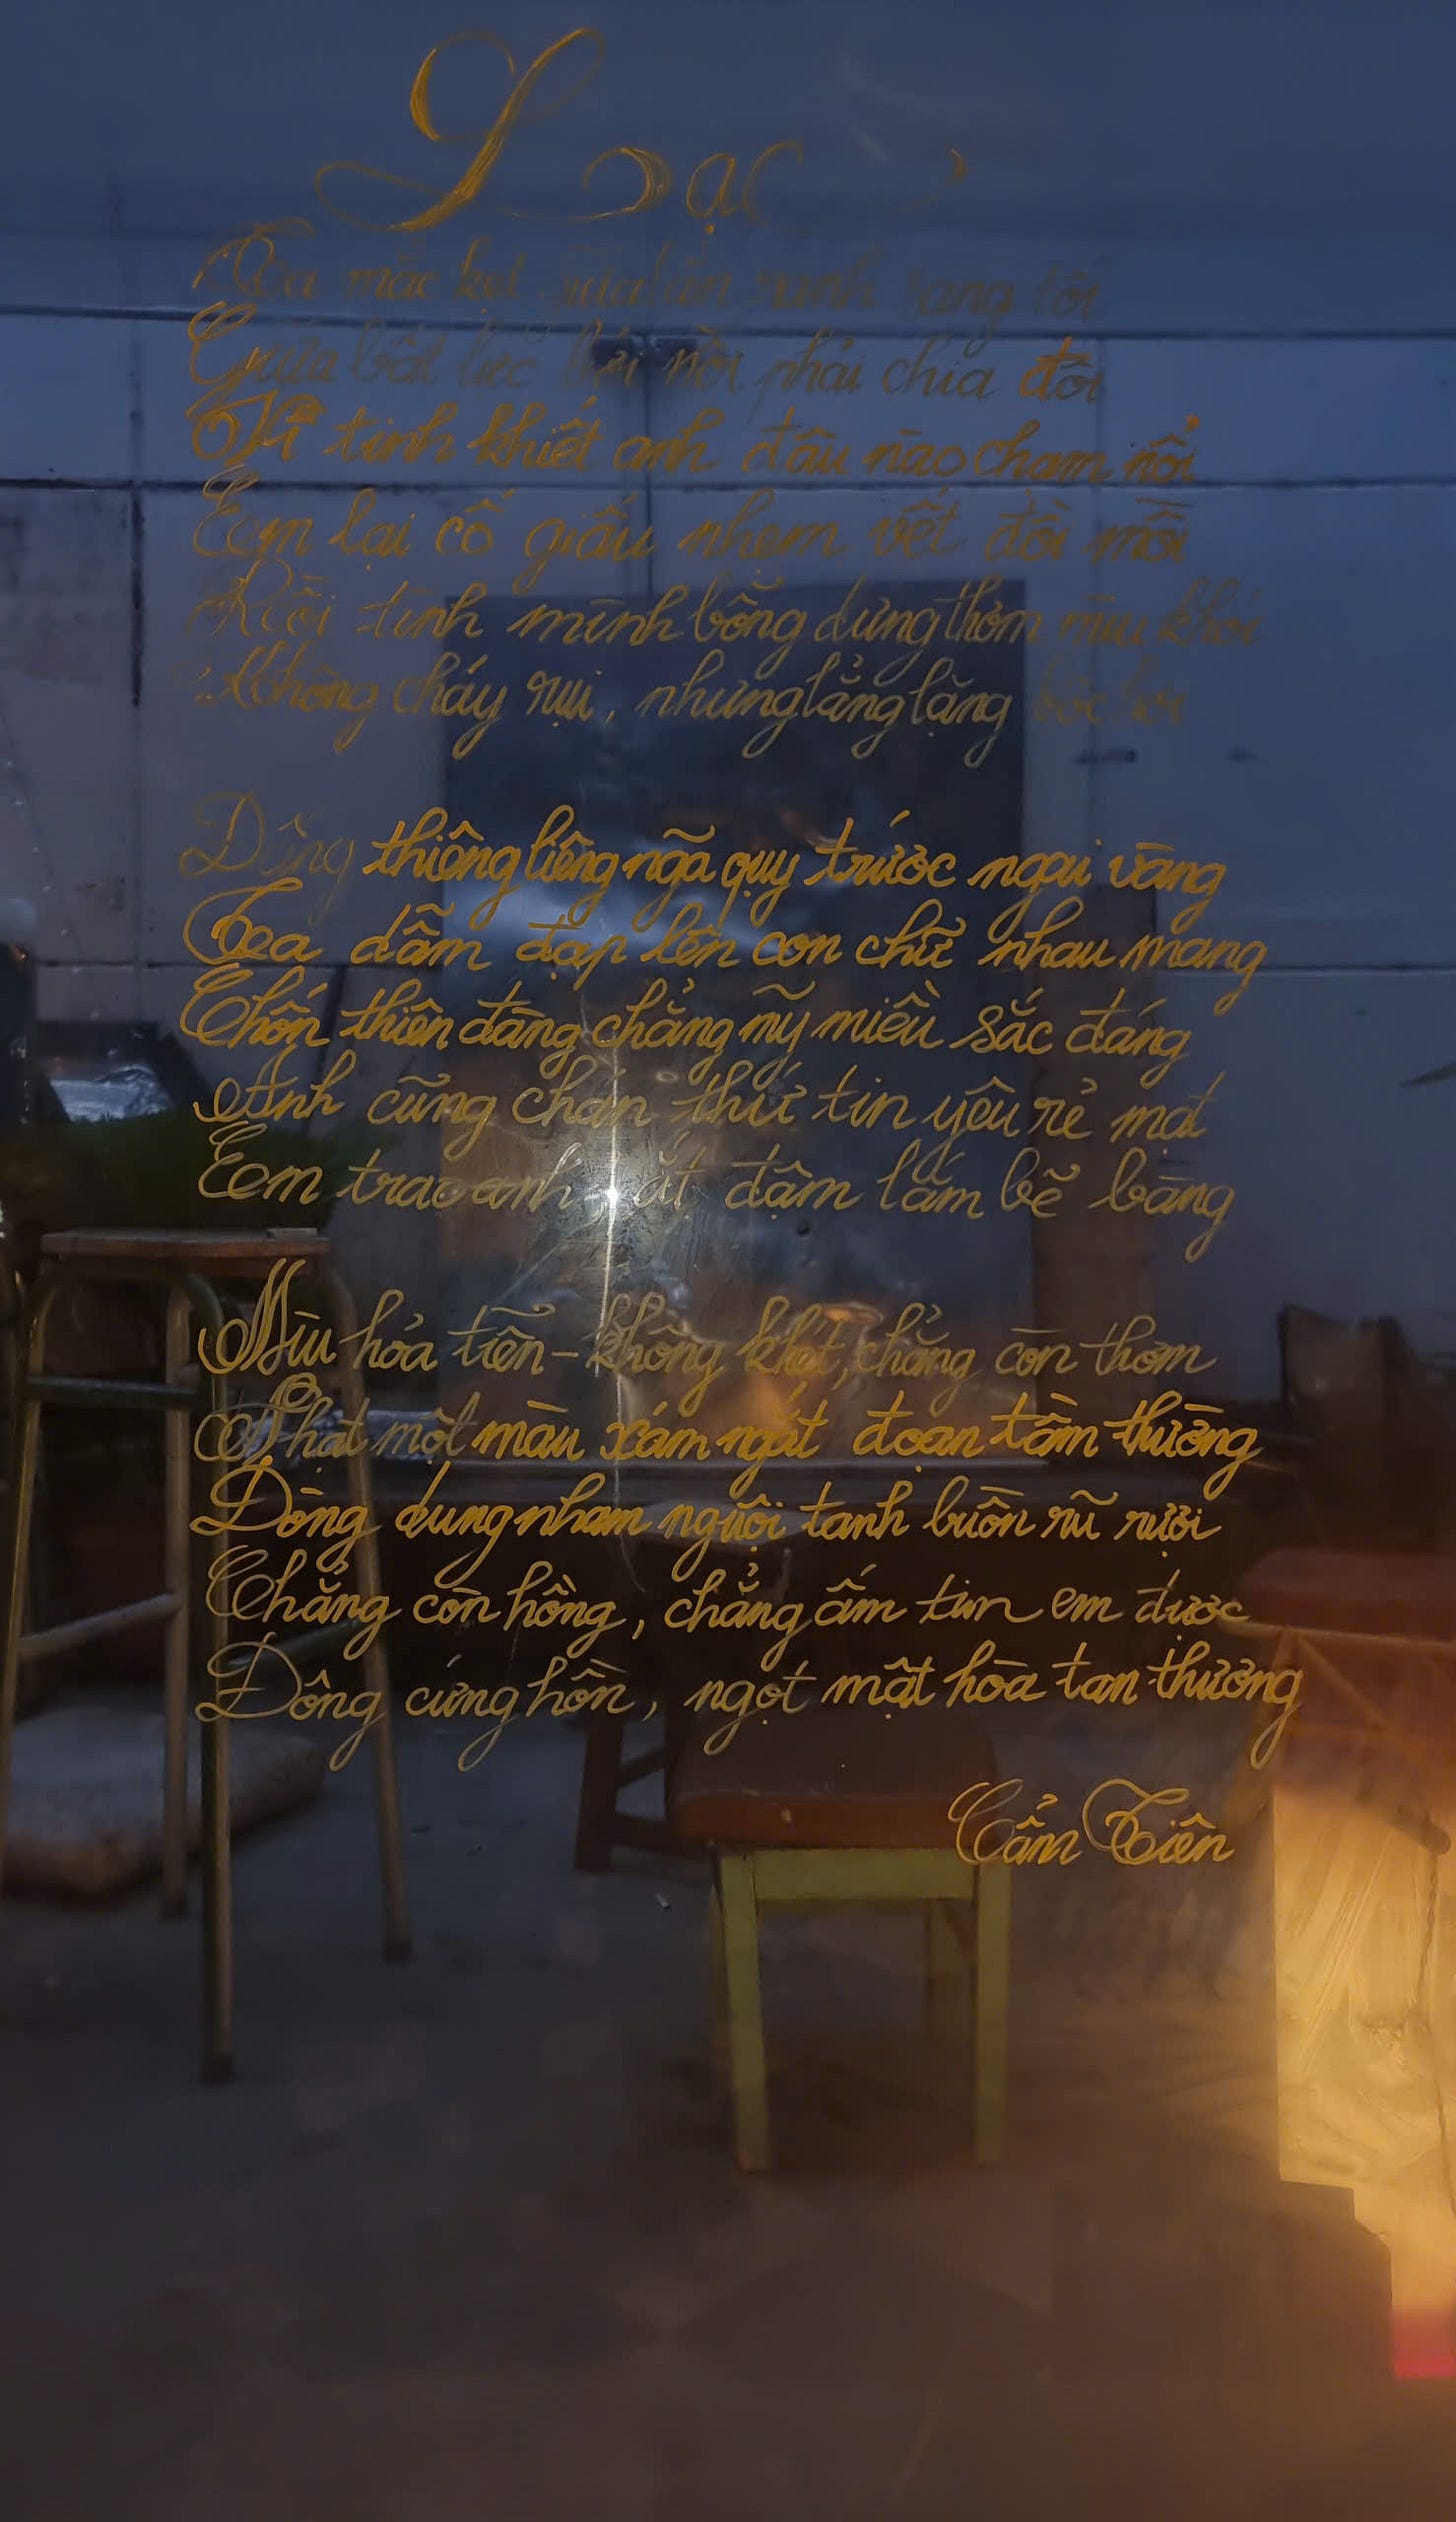 Lạc
Ta mắc kẹt giữa lằn ranh sáng tối
Giữa bất lực bởi nỗi phải chia đôi
Vì tinh khiết anh đâu nào chạm nổi
Em lại cố giấu nhẹm vết đồi mồi
Rồi tình mình bỗng dưng thơm mùi khói
Không cháy rụi, nhưng lẳng lặng bốc hơi
Đấng thiêng liêng ngã quỵ trước ngai vàng
Ta dẫm đạp lên con chữ nhau mang
Chốn thiên đàng chẳng mỹ miều sắc đáng
Anh cũng chán thứ tin yêu rẻ mạt
Em trao anh, ắt đậm lắm bẽ bàng
Mùi hỏa tiễn - không khét, chẳng còn thơm
Phạt một màu xám ngắt đoạn tầm thường
Dòng dung nham nguội tanh buồn rũ rượi
Chẳng còn hồng, chẳng ấm tim em được
Đông cứng hồn, ngọt mật hòa tan thương
Cẩm Tiên